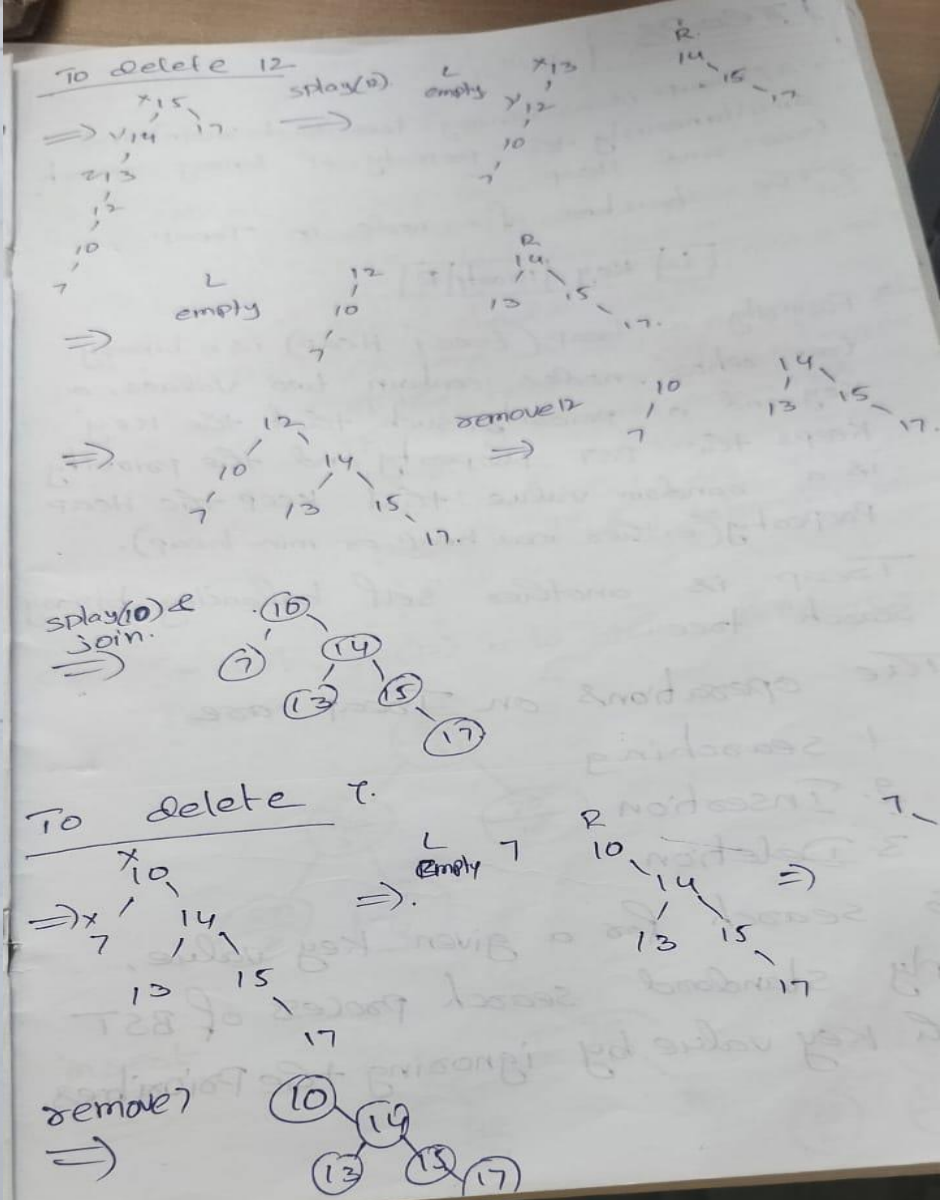 To delete 12
x15
y14 17
z13
12
10
7
splay(12)
⇒
L
empty
x13
y12
10
7
R
14
15
17
⇒
L
empty
12
10
7
R
14
13 15
17.
⇒
12
10 14
7 13 15
17.
remove12
⇒
10
7
14
13 15
17.
splay(10) &
join.
⇒
10
7 14
13 15
17
To delete 7.
⇒
x10
x7 14
13 15
17
⇒.
L
Empty
7
R
10
14
13 15
17
⇒
7
remove7
⇒
10
14
13 15 17